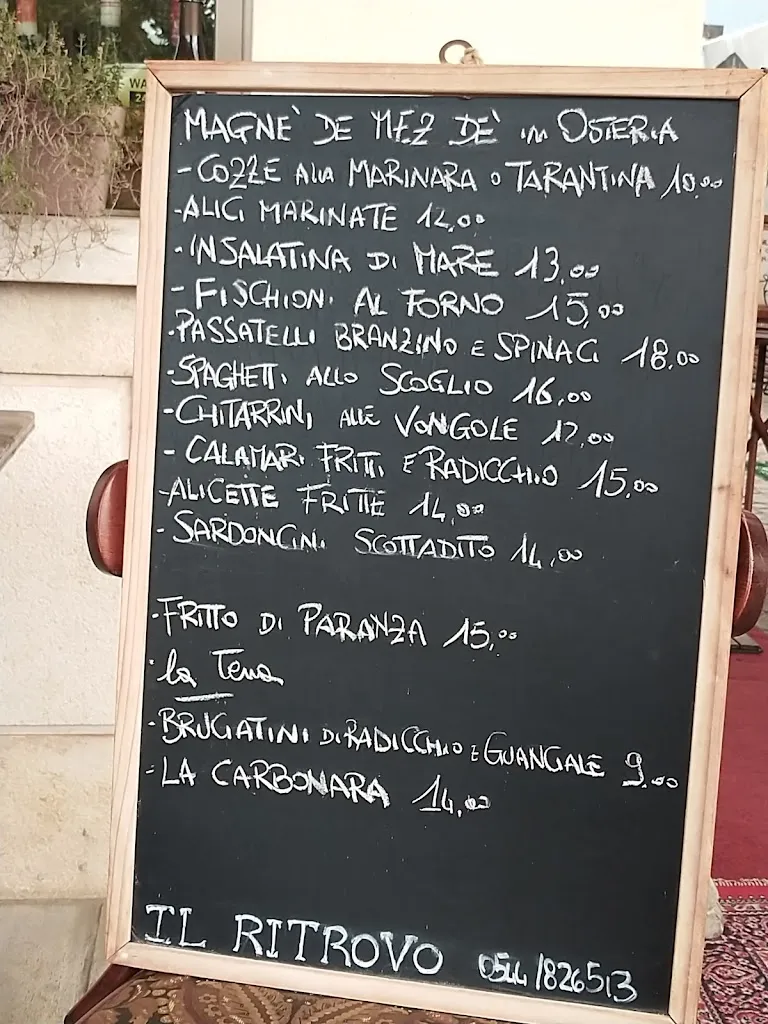 MAGNE' DE MEZ DE' in OSTERIA
- COZZE alla MARINARA o TARANTINA 10,00
- ALICI MARINATE 12,00
- INSALATINA DI MARE 13,00
- FISCHIONI AL FORNO 15,00
- PASSATELLI BRANZINO E SPINACI 18,00
- SPAGHETTI ALLO SCOGLIO 16,00
- CHITARRINI ALLE VONGOLE 12,00
- CALAMARI FRITTI E RADICCHIO 15,00
- ALICETTE FRITTE 14,00
- SARDONCINI SCOTTADITO 14,00
- FRITTO DI PARANZA 15,00
- la Terra
- BRUGATINI DI RADICCHIO E GUANGALE 9,00
- LA CARBONARA 14,00
IL RITROVO 0544/826513